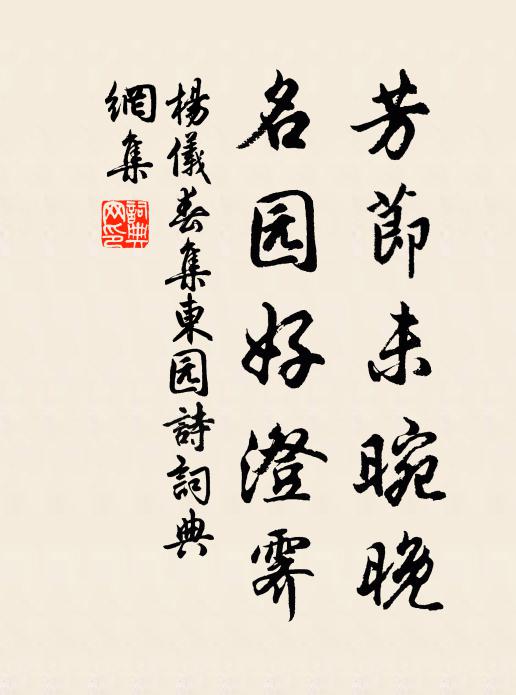 芳節未晼晚
名园好澄霽
楊儀春集東园詩詞典
網集
詞典
网印